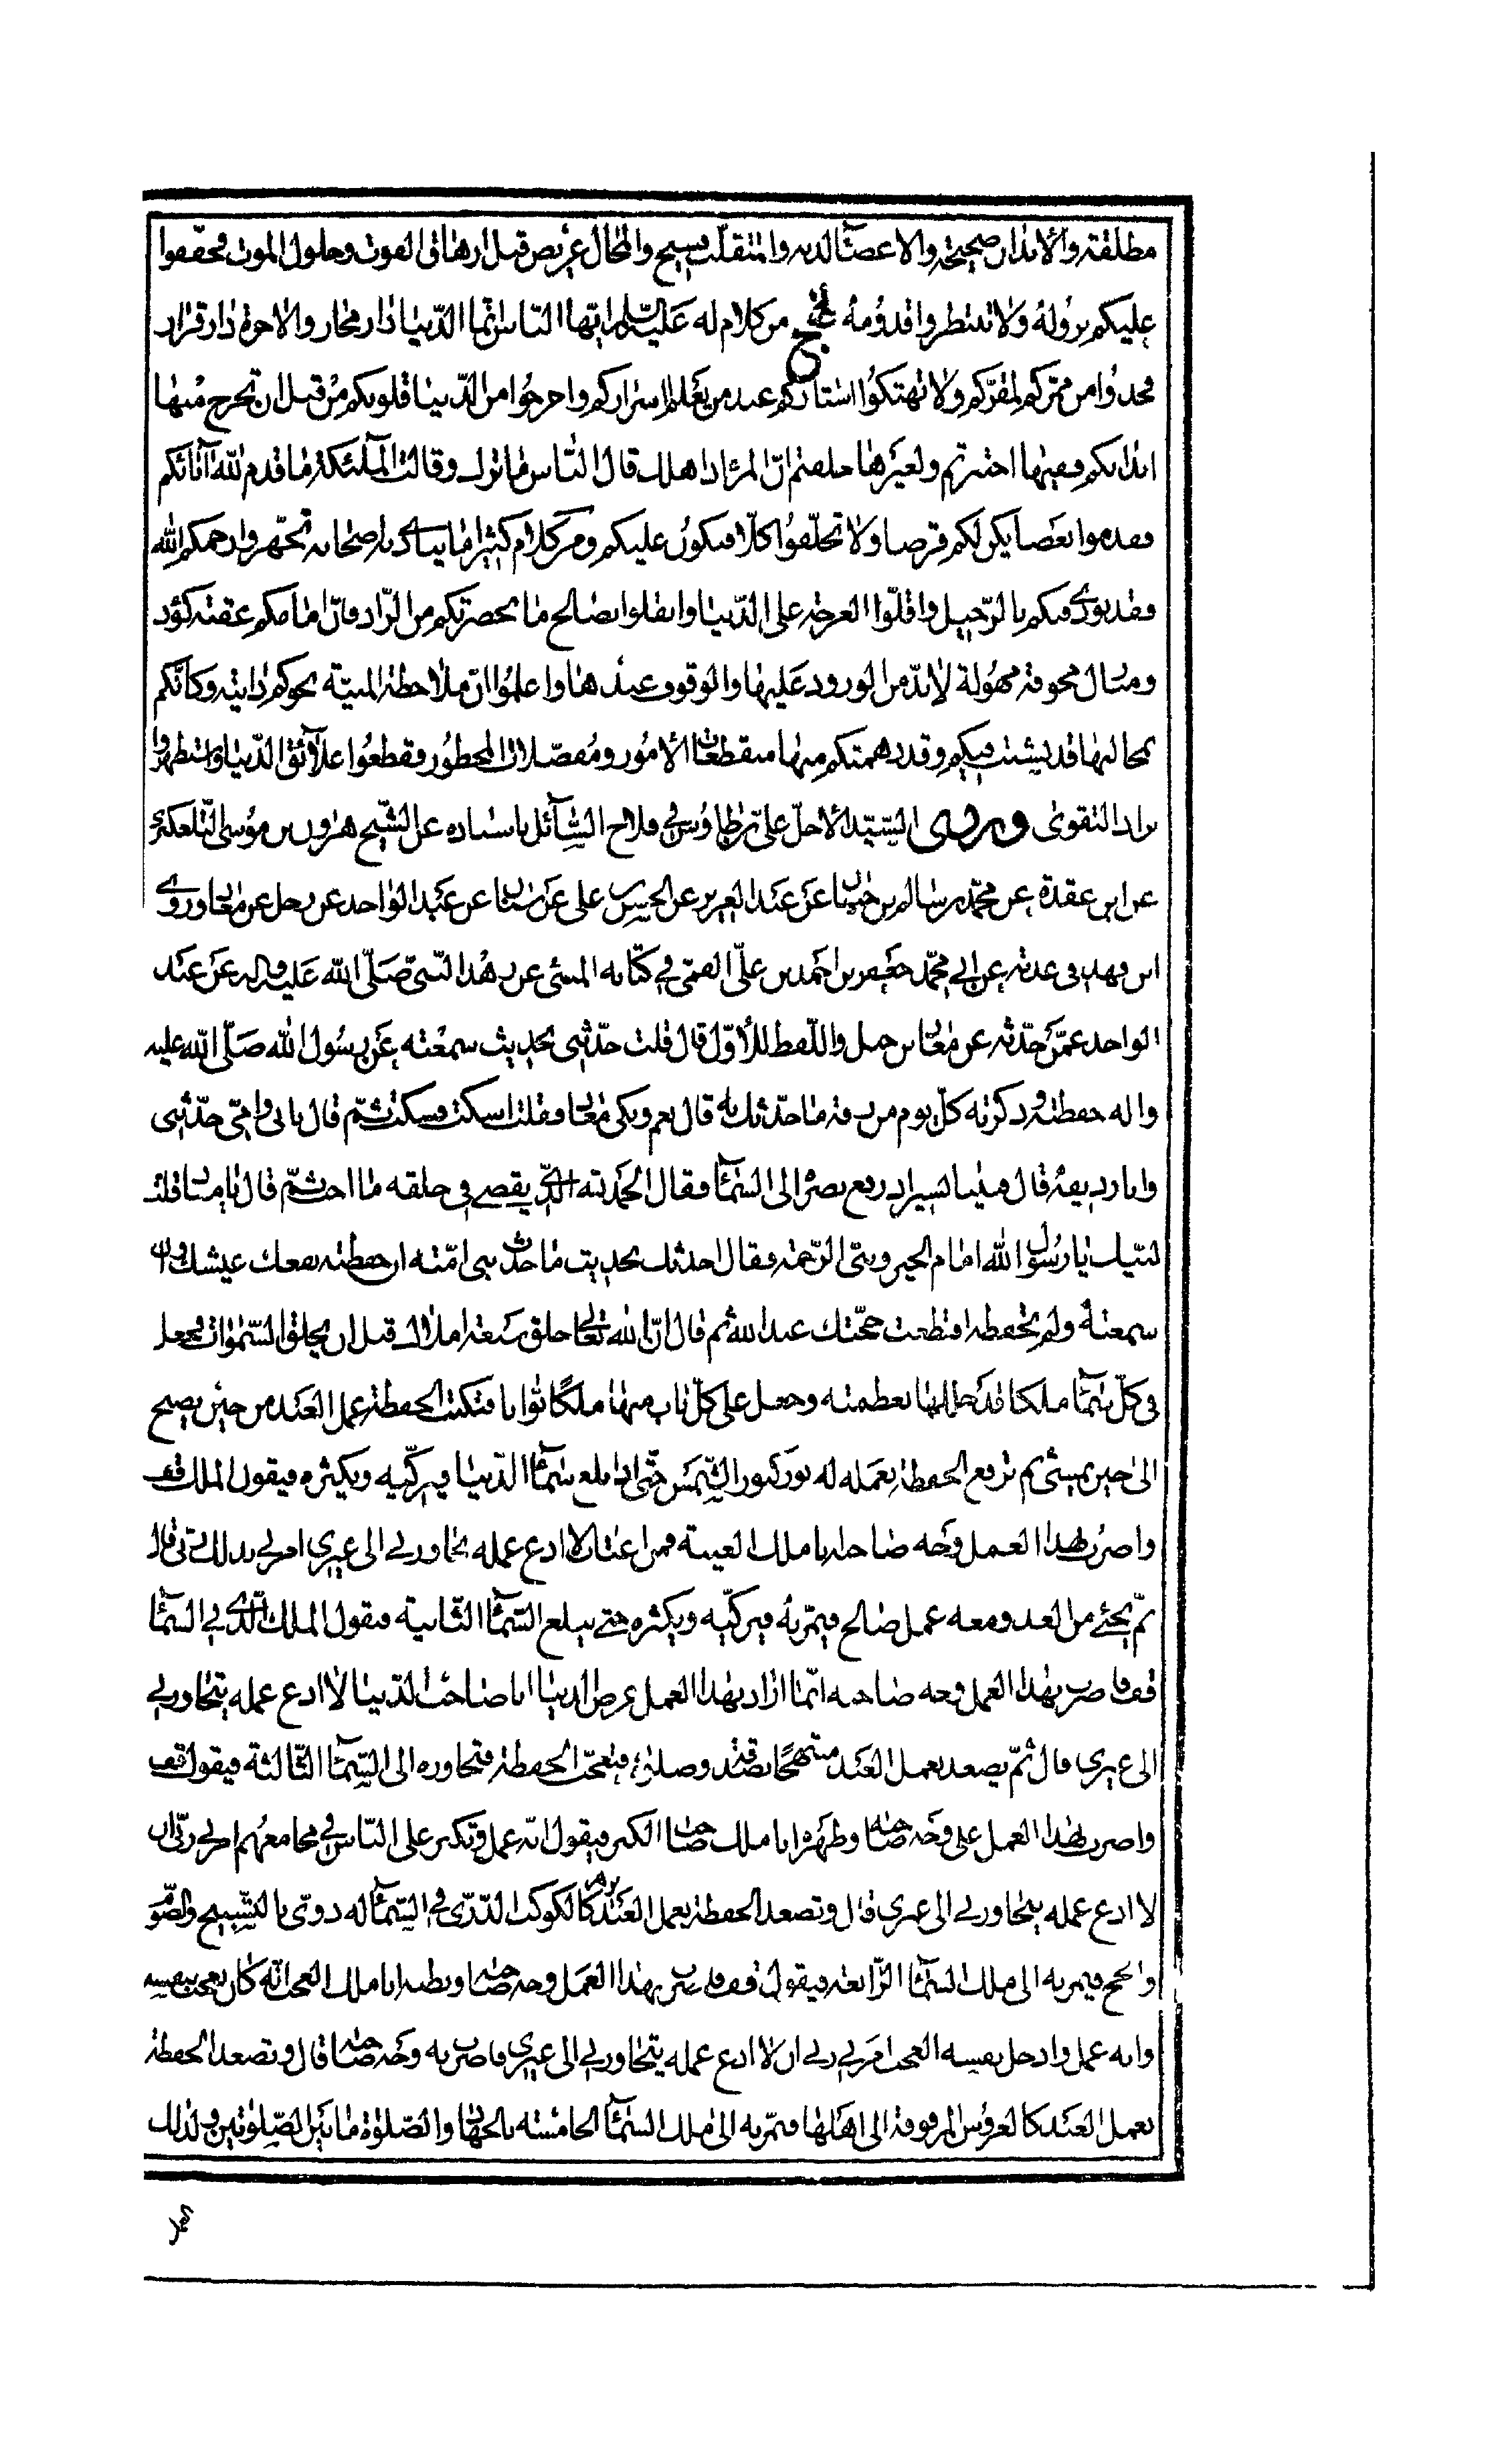 مطلقة والأبدان صحيحة والاعضآء لدنه والمنقلب فسيح والمجال عريض قبل ارهاق الفوت وحلول الموت فحققوا
عليكم نزوله ولا تنتظروا قدومه نهج من كلام له عليه السلم ايها الناس انما الدنيا دار مجاز والاخرة دار قرار
فخذوا من ممركم لمقركم ولا تهتكوا استاركم عند من يعلم اسراركم واخرجوا من الدنيا قلوبكم من قبل ان تخرج منها
ابدانكم ففيها اختبرتم ولغيرها خلقتم ان المرء اذا هلك قال الناس ما ترك وقالت الملئكة ما قدم لله آبائكم
فقدموا بعضا يكن لكم قرضا ولا تخلفوا كلا فيكون عليكم ومن كلام كثيرا ما ينادى به اصحابه تجهزوا رحمكم الله
فقد نودى فيكم بالرحيل واقلوا العرجة على الدنيا وانقلبوا بصالح ما بحضرتكم من الزاد فان امامكم عقبة كؤد
ومنازل مخوفة مهولة لابد من الورود عليها والوقوف عندها واعلموا ان ملاحظ المنية نحوكم دانية وكانكم
بمخالبها قد نشبت فيكم وقد دهمتكم منها مفظعات الأمور ومعضلات المحظور فقطعوا علائق الدنيا واستظهروا
بزاد التقوى وروى السيد الأجل على بن طاوس فى فلاح السآئل باسناده عن الشيخ هرون بن موسى التلعكبرى
عن ابن عقدة عن محمد بن سالم بن جبهان عن عبد العزيز عن الحسن بن على عن سنان عن عبد الواحد عن رجل عن معاذ وروى
ابن فهد فى عدته عن ابي محمد جعفر بن احمد بن على القمى فى كتابه المنبئ عن زهد النبى صلى الله عليه واله عن عبد
الواحد عمن حدثه عن معاذ بن جبل واللفظ للأول قال قلت حدثنى بحديث سمعته عن رسول الله صلى الله عليه
واله حفظته وذكرته كل يوم من رقة ما حدثك به قال نعم وبكى معاذ فقلت اسكت فسكت ثم قال بابى وامى حدثنى
وانا رديفه قال فبينا نسير اذ رفع بصره الى السمآء فقال الحمد لله الذى يقضى فى خلقه ما احب ثم قال يا معاذ قلت
لبيك يا رسول الله امام الخير ونبى الرحمة فقال احدثك بحديث ما حدث نبى امته ان حفظته نفعك عيشك وان
سمعته ولم تحفظه انقطعت حجتك عند الله ثم قال ان الله تعالى خلق سبعة املاك قبل ان يخلق السموات فجعل
فى كل سمآء ملكا قد جللها بعظمته وجعل على كل باب منها ملكا بوابا فتكتب الحفظة عمل العبد من حين يصبح
الى حين يمسى ثم ترفع الحفظة بعمله له نور كنور الشمس حتى اذا بلغ سمآء الدنيا فيزكيه ويكثره فيقول الملك قف
واضرب بهذا العمل وجه صاحبه انا ملك الغيبة فمن اغتاب لا ادع عمله يجاوزنى الى غيرى امرنى بذلك ربى قال
ثم يجئ من الغد ومعه عمل صالح فيمر به فيزكيه ويكثره حتى يبلغ السمآء الثانية فيقول الملك الذى فى السمآء
قف فاضرب بهذا العمل وجه صاحبه انما اراد بهذا العمل عرض الدنيا انا صاحب الدنيا لا ادع عمله يتجاوزنى
الى غيرى قال ثم يصعد بعمل العبد مبتهجا بصدقة وصلوة فتعجب الحفظة فتجاوزه الى السمآء الثالثة فيقول قف
واضرب بهذا العمل على وجه صاحبه وظهره انا ملك صاحب الكبر فيقول انه عمل وتكبر على الناس فى مجامعهم امرنى ربى ان
لا ادع عمله يتجاوزنى الى غيرى قال وتصعد الحفظة بعمل العبد يزهر كالكوكب الدرى فى السمآء له دوى بالتسبيح والصوم
والحج فيمر به الى ملك السمآء الرابعة فيقول قف فاضرب بهذا العمل وجه صاحبه وبطنه انا ملك العجب انه كان يعجب بنفسه
وانه عمل وادخل بنفسه العجب امرنى ربى ان لا ادع عمله يتجاوزنى الى غيرى فاضرب به وجه صاحبه قال وتصعد الحفظة
بعمل العبد كالعروس المزفوفة الى اهلها فتمر به الى ملك السمآء الخامسة بالجهاد والصلوة ما بين الصلوتين ولذلك